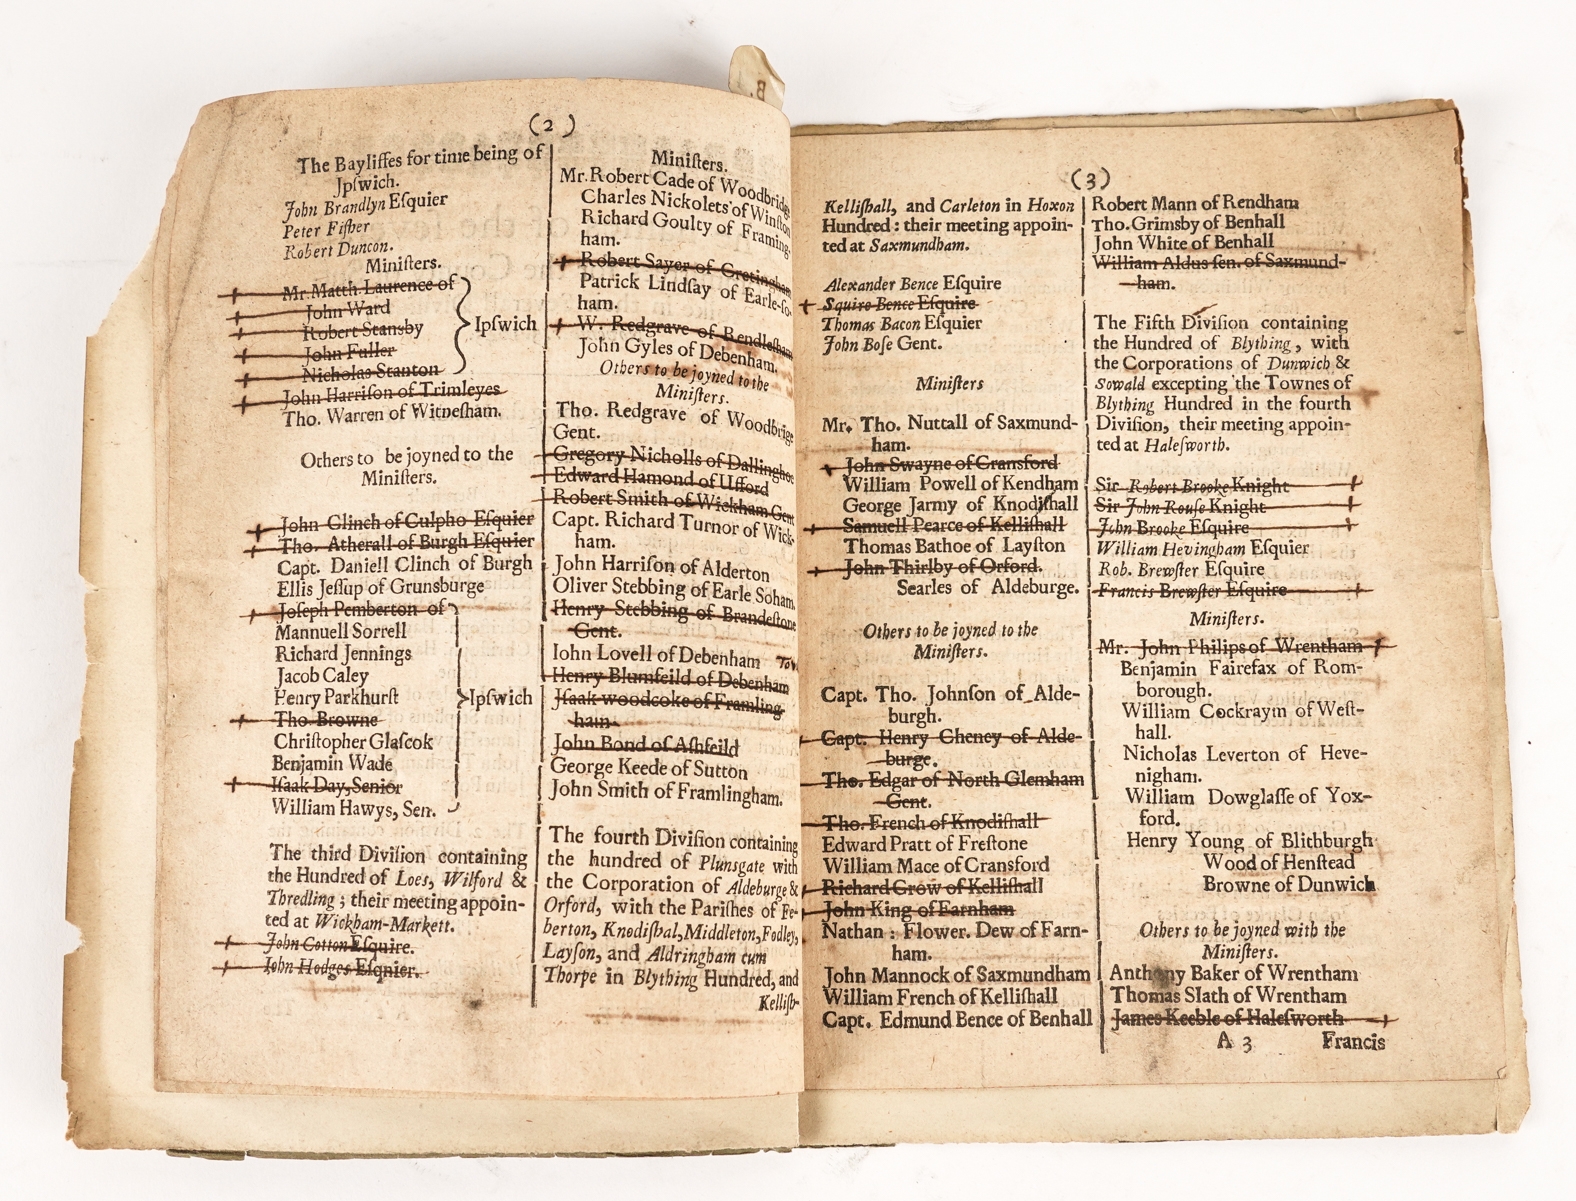 B.
(2)
The Bayliſſes for time being of
Jpſwich.
John Brandlyn Eſquier
Peter Fiſher
Robert Duncon.
Miniſters.
Mr. Matth. Laurence of
John Ward
Robert Stansby
John Fuller
Nicholas Stanton
Ipſwich
John Harriſon of Trimleyes
Tho. Warren of Witneſham.
Others to be joyned to the
Miniſters.
John Clinch of Culpho Eſquier
Tho. Atherall of Burgh Eſquier
Capt. Daniell Clinch of Burgh
Ellis Jeſſup of Grunsburge
Joſeph Pemberton of
Mannuell Sorrell
Richard Jennings
Jacob Caley
Henry Parkhurſt
Tho. Browne
Chriſtopher Glaſcok
Benjamin Wade
Iſaak Day, Senior
William Hawys, Sen.
Ipſwich
The third Diviſion containing
the Hundred of Loes, Wilford &
Thredling; their meeting appoin-
ted at Wickham-Markett.
John Cotton Eſquire.
John Hodges Eſqnier.
Miniſters.
Mr. Robert Cade of Woodbridge
Charles Nickolets of Winſton
Richard Goulty of Framing-
ham.
Robert Sayer of Cretingham
Patrick Lindſay of Earle-ſo-
ham.
W. Redgrave of Rendleſham
John Gyles of Debenham.
Others to be joyned to the
Miniſters.
Tho. Redgrave of Woodbrige
Gent.
Gregory Nicholls of Dallinghoe
Edward Hamond of Ufford
Robert Smith of Wickham Gent
Capt. Richard Turnor of Wick-
ham.
John Harriſon of Alderton
Oliver Stebbing of Earle Soham.
Henry Stebbing of Brandeſtone
Gent.
Iohn Lovell of Debenham
Henry Blumfeild of Debenham
Iſaak woodcoke of Framling-
ham.
John Bond of Aſhfeild
George Keede of Sutton
John Smith of Framlingham.
The fourth Diviſion containing
the hundred of Plunsgate with
the Corporation of Aldeburge &
Orford, with the Pariſhes of Fe-
berton, Knodiſhal, Middleton, Fodley,
Layſon, and Aldringham cum
Thorpe in Blything Hundred, and
Kelliſh-
(3)
Kelliſhall, and Carleton in Hoxon
Hundred: their meeting appoin-
ted at Saxmundham.
Alexander Bence Eſquire
Squire Bence Eſquire
Thomas Bacon Eſquier
John Boſe Gent.
Miniſters
Mr. Tho. Nuttall of Saxmund-
ham.
John Swayne of Cransford
William Powell of Kendham
George Jarmy of Knodiſhall
Samuell Pearce of Kelliſhall
Thomas Bathoe of Layſton
John Thirlby of Orford.
Searles of Aldeburge.
Others to be joyned to the
Miniſters.
Capt. Tho. Johnſon of Alde-
burgh.
Capt. Henry Cheney of Alde-
burge.
Tho. Edgar of North Glemham
Gent.
Tho. French of Knodiſhall
Edward Pratt of Freſtone
William Mace of Cransford
Richard Grow of Kelliſhall
John King of Farnham
Nathan: Flower. Dew of Farn-
ham.
John Mannock of Saxmundham
William French of Kelliſhall
Capt. Edmund Bence of Benhall
Robert Mann of Rendham
Tho. Grimsby of Benhall
John White of Benhall
William Aldus ſen. of Saxmund-
ham.
The Fifth Diviſion containing
the Hundred of Blything, with
the Corporations of Dunwich &
Sowald excepting the Townes of
Blything Hundred in the fourth
Diviſion, their meeting appoin-
ted at Haleſworth.
Sir Robert Brooke Knight
Sir John Rouſe Knight
John Brooke Eſquire
William Hevingham Eſquier
Rob. Brewſter Eſquire
Francis Brewſter Eſquire
Miniſters.
Mr. John Philips of Wrentham
Benjamin Fairefax of Rom-
borough.
William Cockraym of Weſt-
hall.
Nicholas Leverton of Heve-
nigham.
William Dowglaſſe of Yox-
ford.
Henry Young of Blithburgh
Wood of Henſtead
Browne of Dunwich
Others to be joyned with the
Miniſters.
Anthony Baker of Wrentham
Thomas Slath of Wrentham
James Keeble of Haleſworth
A 3 Francis